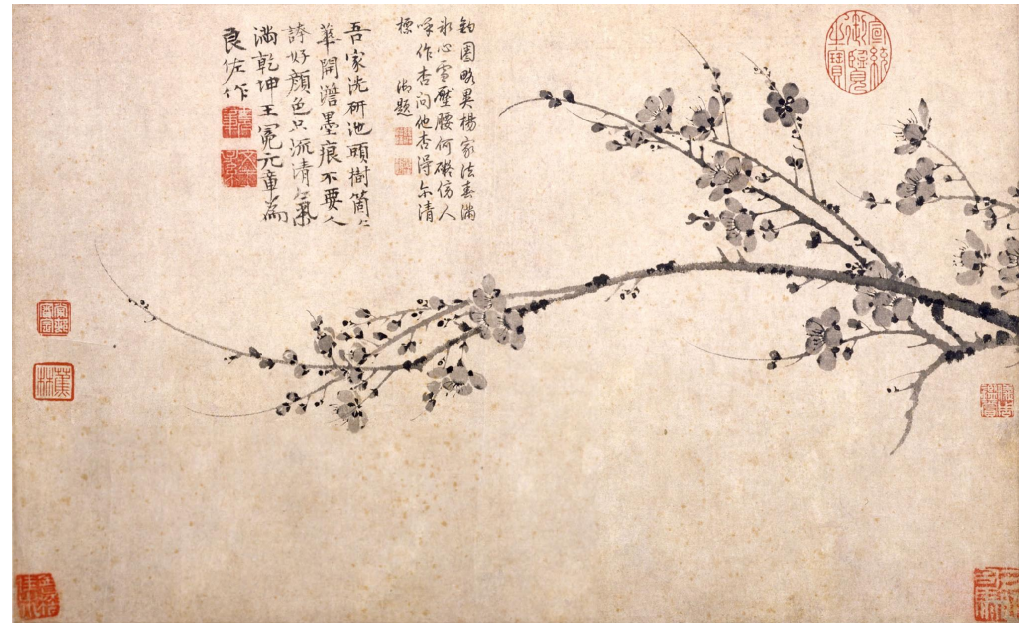 宣統御覽之寶
鈎圈略異楊家法春滿
氷心雪壓腰何礙傍人
呼作杏問他杏得尔清
標
御題
吾家洗研池頭樹箇〻
華開澹墨痕不要人
誇好顏色只流清氣
滿乾坤王冕元章為
良佐作
蕉林